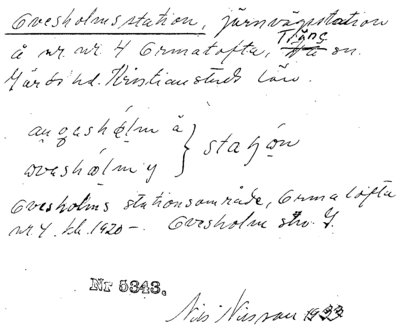 Ovesholms station, järnvägsstation
å nr. nr. 4 Ormatofta, Träne sn.
Gärds hd. Kristianstads län.
auvashólm å } stahón
oveshólm y
Ovesholms stationsområde, Ormatofta
nr. 4. kb. 1920 –. Ovesholm
Nr 5343.
Nils Nilsson 1933